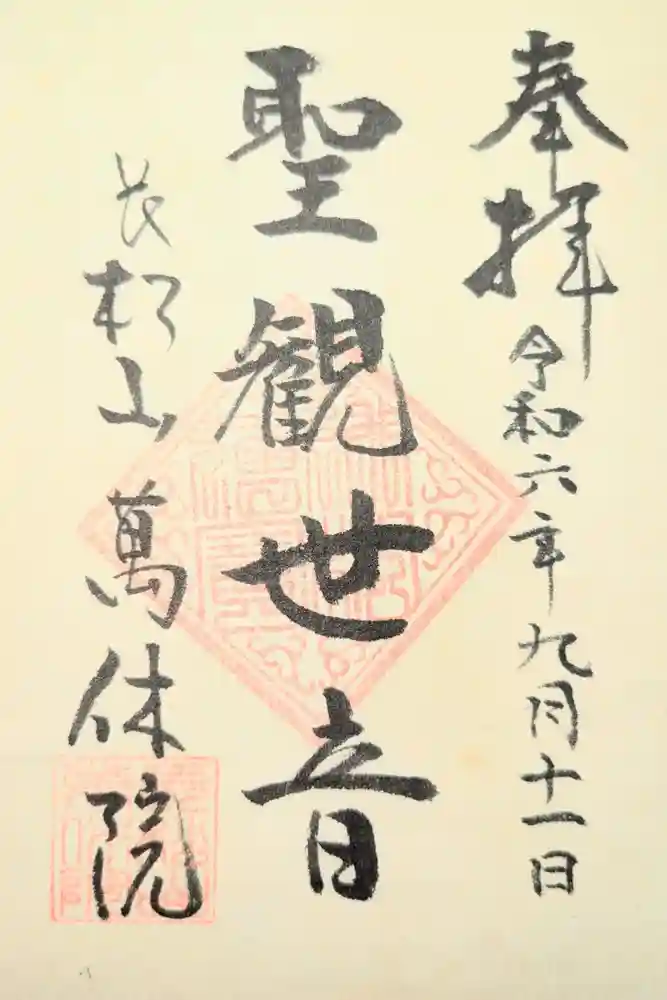 奉拝 令和六年九月十一日
聖観世音
長松山 萬休院